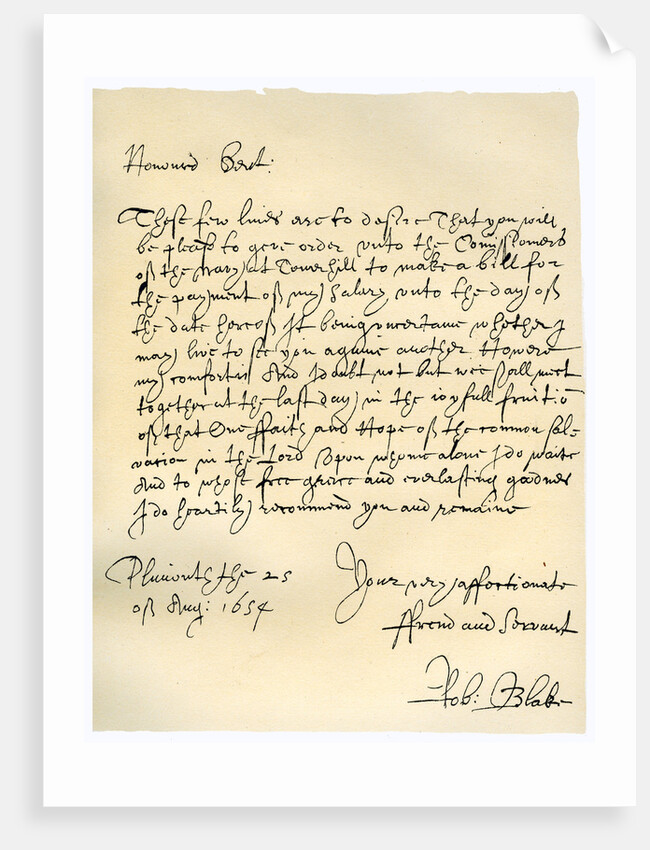 Honourd Gent:
These few lines are to desire that you will
be pleasd to geve order unto the Comissioners
of the Navy at Towerhill to make a bill for
the payment of my Salary unto the day of
the date hereof It being uncertaine whether I
may live to see you againe another. Howere
my comfort is And I doubt not but wee shall meet
together at the last day in the ioyfull fruitiō
of that One ffaith and Hope of the common Sal-
vation in the Lord Upon whome alone I do waite
And to whose free grace and everlasting goodnes
I do heartily recommend you and remaine
Plimouth the 25
of Aug: 1654
Your very affectionate
ffrend and Servant
Rob: Blake